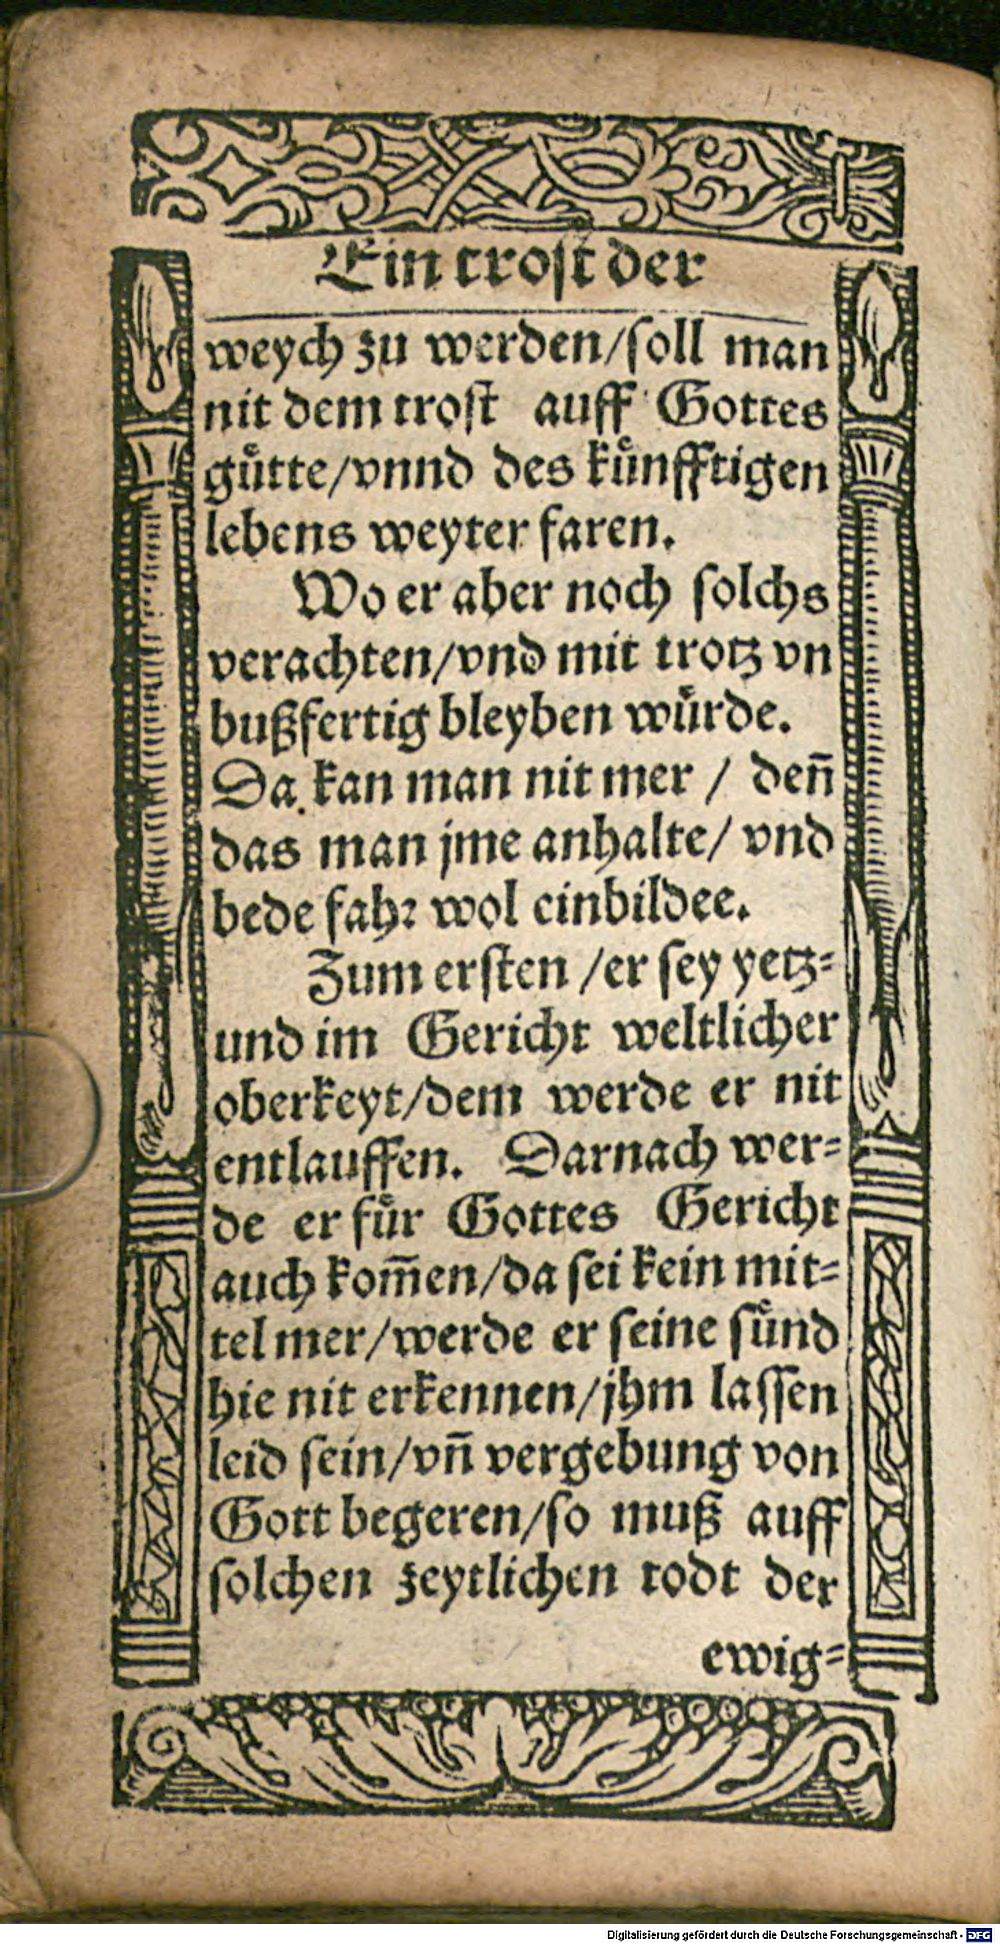 Ein trost der
weych zu werden/soll man
nit dem trost auff Gottes
guͤtte/vnnd des kuͤnfftigen
lebens weyter faren.
Wo er aber noch solchs
verachten/vnd mit trotz vn
bußfertig bleyben wuͤrde.
Da kan man nit mer / deñ
das man jme anhalte/ vnd
bede fahꝛ wol einbildee.
Zum ersten /er sey yetz-
und im Gericht weltlicher
oberkeyt/dem werde er nit
entlauffen. Darnach wer-
de er fuͤr Gottes Gericht
auch kom̃en/da sei kein mit-
tel mer/werde er seine suͤnd
hie nit erkennen/jhm lassen
leid sein/vñ vergebung von
Gott begeren/so muß auff
solchen zeytlichen todt der
ewig-
Digitalisierung gefördert durch die Deutsche Forschungsgemeinschaft - DFG